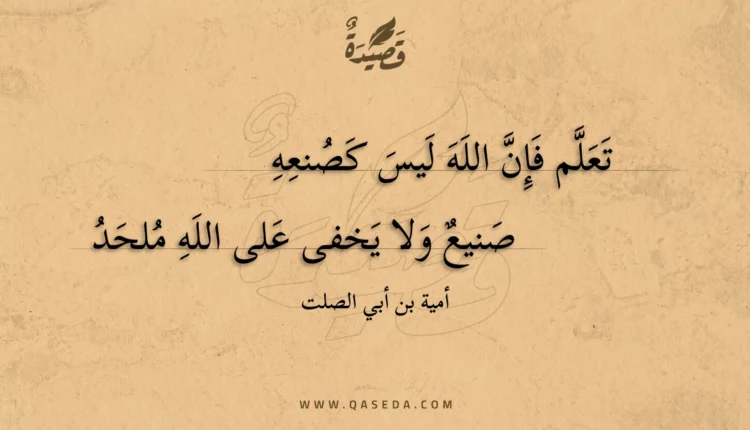 قَصِيدَةٌ
تَعَلَّم فَإِنَّ اللَهَ لَيسَ كَصُنعِهِ
صَنيعٌ وَلا يَخفى عَلى اللَهِ مُلحَدُ
أمية بن أبي الصلت
WWW.QASEDA.COM